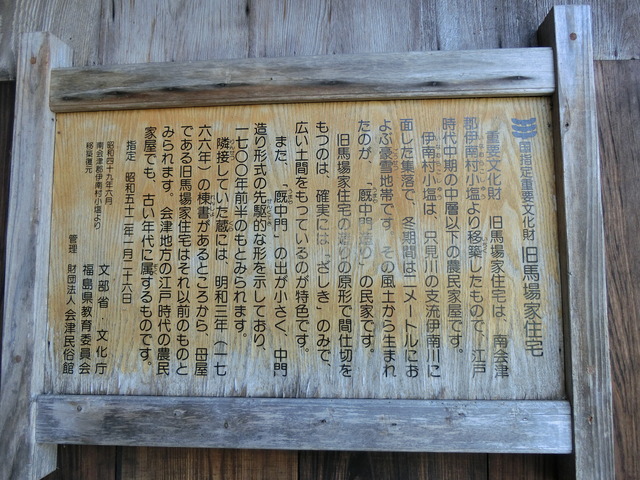 国指定重要文化財 旧馬場家住宅
重要文化財 旧馬場家住宅は、南会津
郡伊南村小塩より移築したもので、江戸
時代中期の中層以下の農民家屋です。
伊南村小塩は、只見川の支流伊南川に
面した集落で、冬期間は二メートルにお
よぶ豪雪地帯です。その風土から生まれ
たのが、「厩中門造り」の民家です。
旧馬場家住宅の造りの原形で間仕切を
もつのは、確実には「ざしき」のみで、
広い土間をもっているのが特色です。
また、「厩中門」の出が小さく、中門
造り形式の先駆的な形を示しており、
一七〇〇年前半のもとみられます。
隣接していた蔵には、明和三年(一七
六六年)の棟書があるところから、母屋
である旧馬場家住宅はそれ以前のものと
みられます。会津地方の江戸時代の農民
家屋でも、古い年代に属するものです。
指定 昭和五十二年一月二十六日
昭和四十九年六月
南会津郡伊南村小塩より
移築復元
文部省 文化庁
福島県教育委員会
管理 財団法人会津民俗館